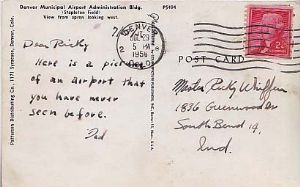 Denver Municipal Airport Administration Bldg.
(Stapleton Field)
View from apron looking west.
P5104
DENVER
2
5 PM
1956
COLO.
2¢
POST CARD
Dear Ricky
Here is a pic
of an airport that
you have never
seen before.
Dad
Master Ricky
1836 Greenwood
South Bend 19,
Ind.
Patterson Distributing Co., 1771 Denver, Colo.